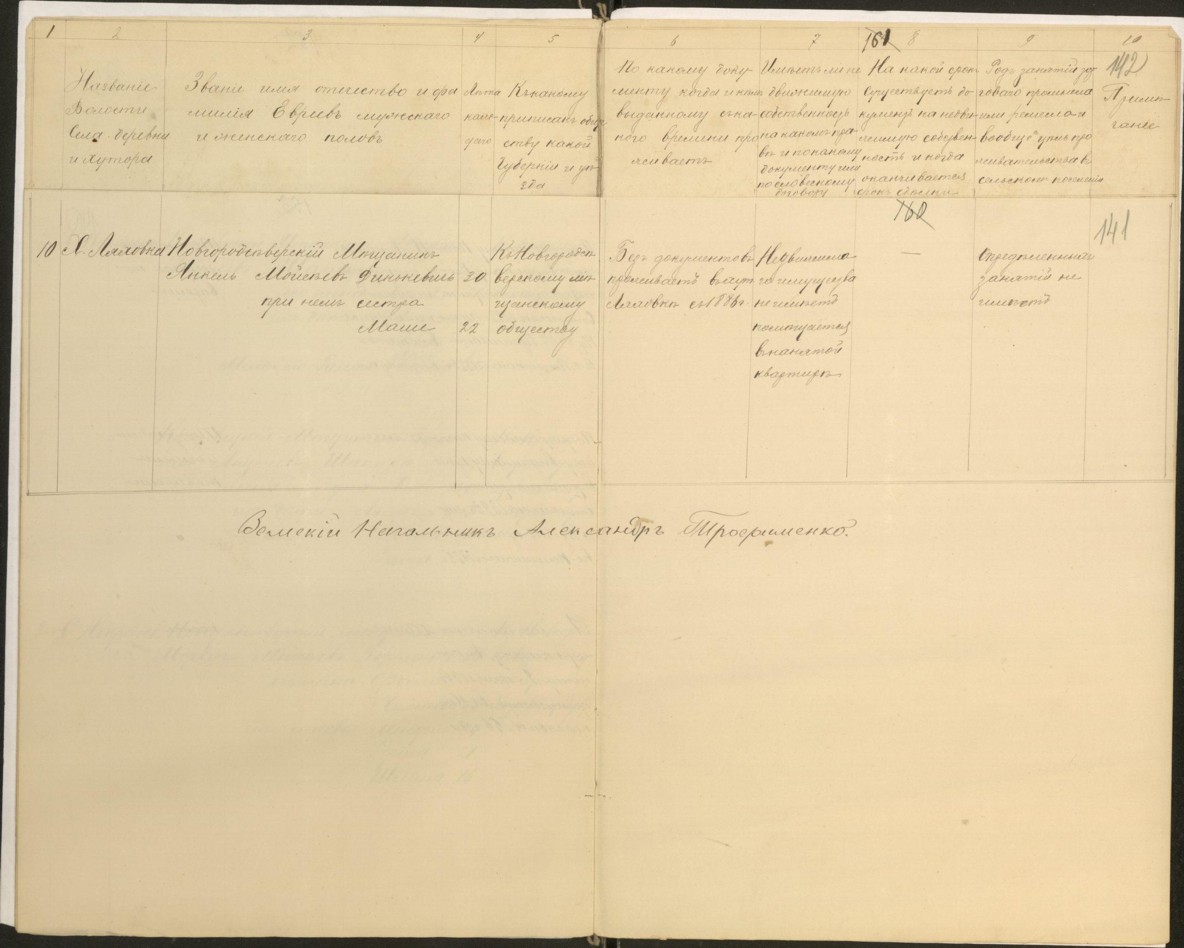 1 2 3 4 5 6 7 8 9 10
161
142
Названіе
Волости
Села деревни
и Хутора
Званіе имя отчество и фа
милія Евреевъ мужскаго
и женскаго половъ
Лѣта
каж
даго
Къ какому
приписанъ обще
ству какой
Губерніи и уѣ
зда
По какому доку
менту когда и кѣмъ
выданному съ ка
кого времени про
живаетъ
Имѣетъ ли не
движимую
собственность
на какомъ пра
вѣ и по какому
документу или
по словесному
договору
На какой срокъ
существуетъ до
на недви
жимую собствен
ность и когда
оканчивается
срокъ
Родъ занятій тор
говаго промысла
или ремесла и
вообще
жительства въ
сельскомъ
Примѣ
чаніе
160
141
10 Х. Лялловка
Новгородсѣверскій Мѣщанинъ
Мойсеевъ Финкевичъ
при немъ сестра
Маше
20
22
Къ Новгородсѣ
верскому мѣ
щанскому
обществу
Безъ документовъ
проживаетъ въ хут
съ 1883г
Недвижима
го имущества
не имѣетъ
помѣщается
въ нанятой
квартирѣ
—
Опредѣленныхъ
занятій не
имѣетъ
Земскій Начальникъ Александръ Трофименко.